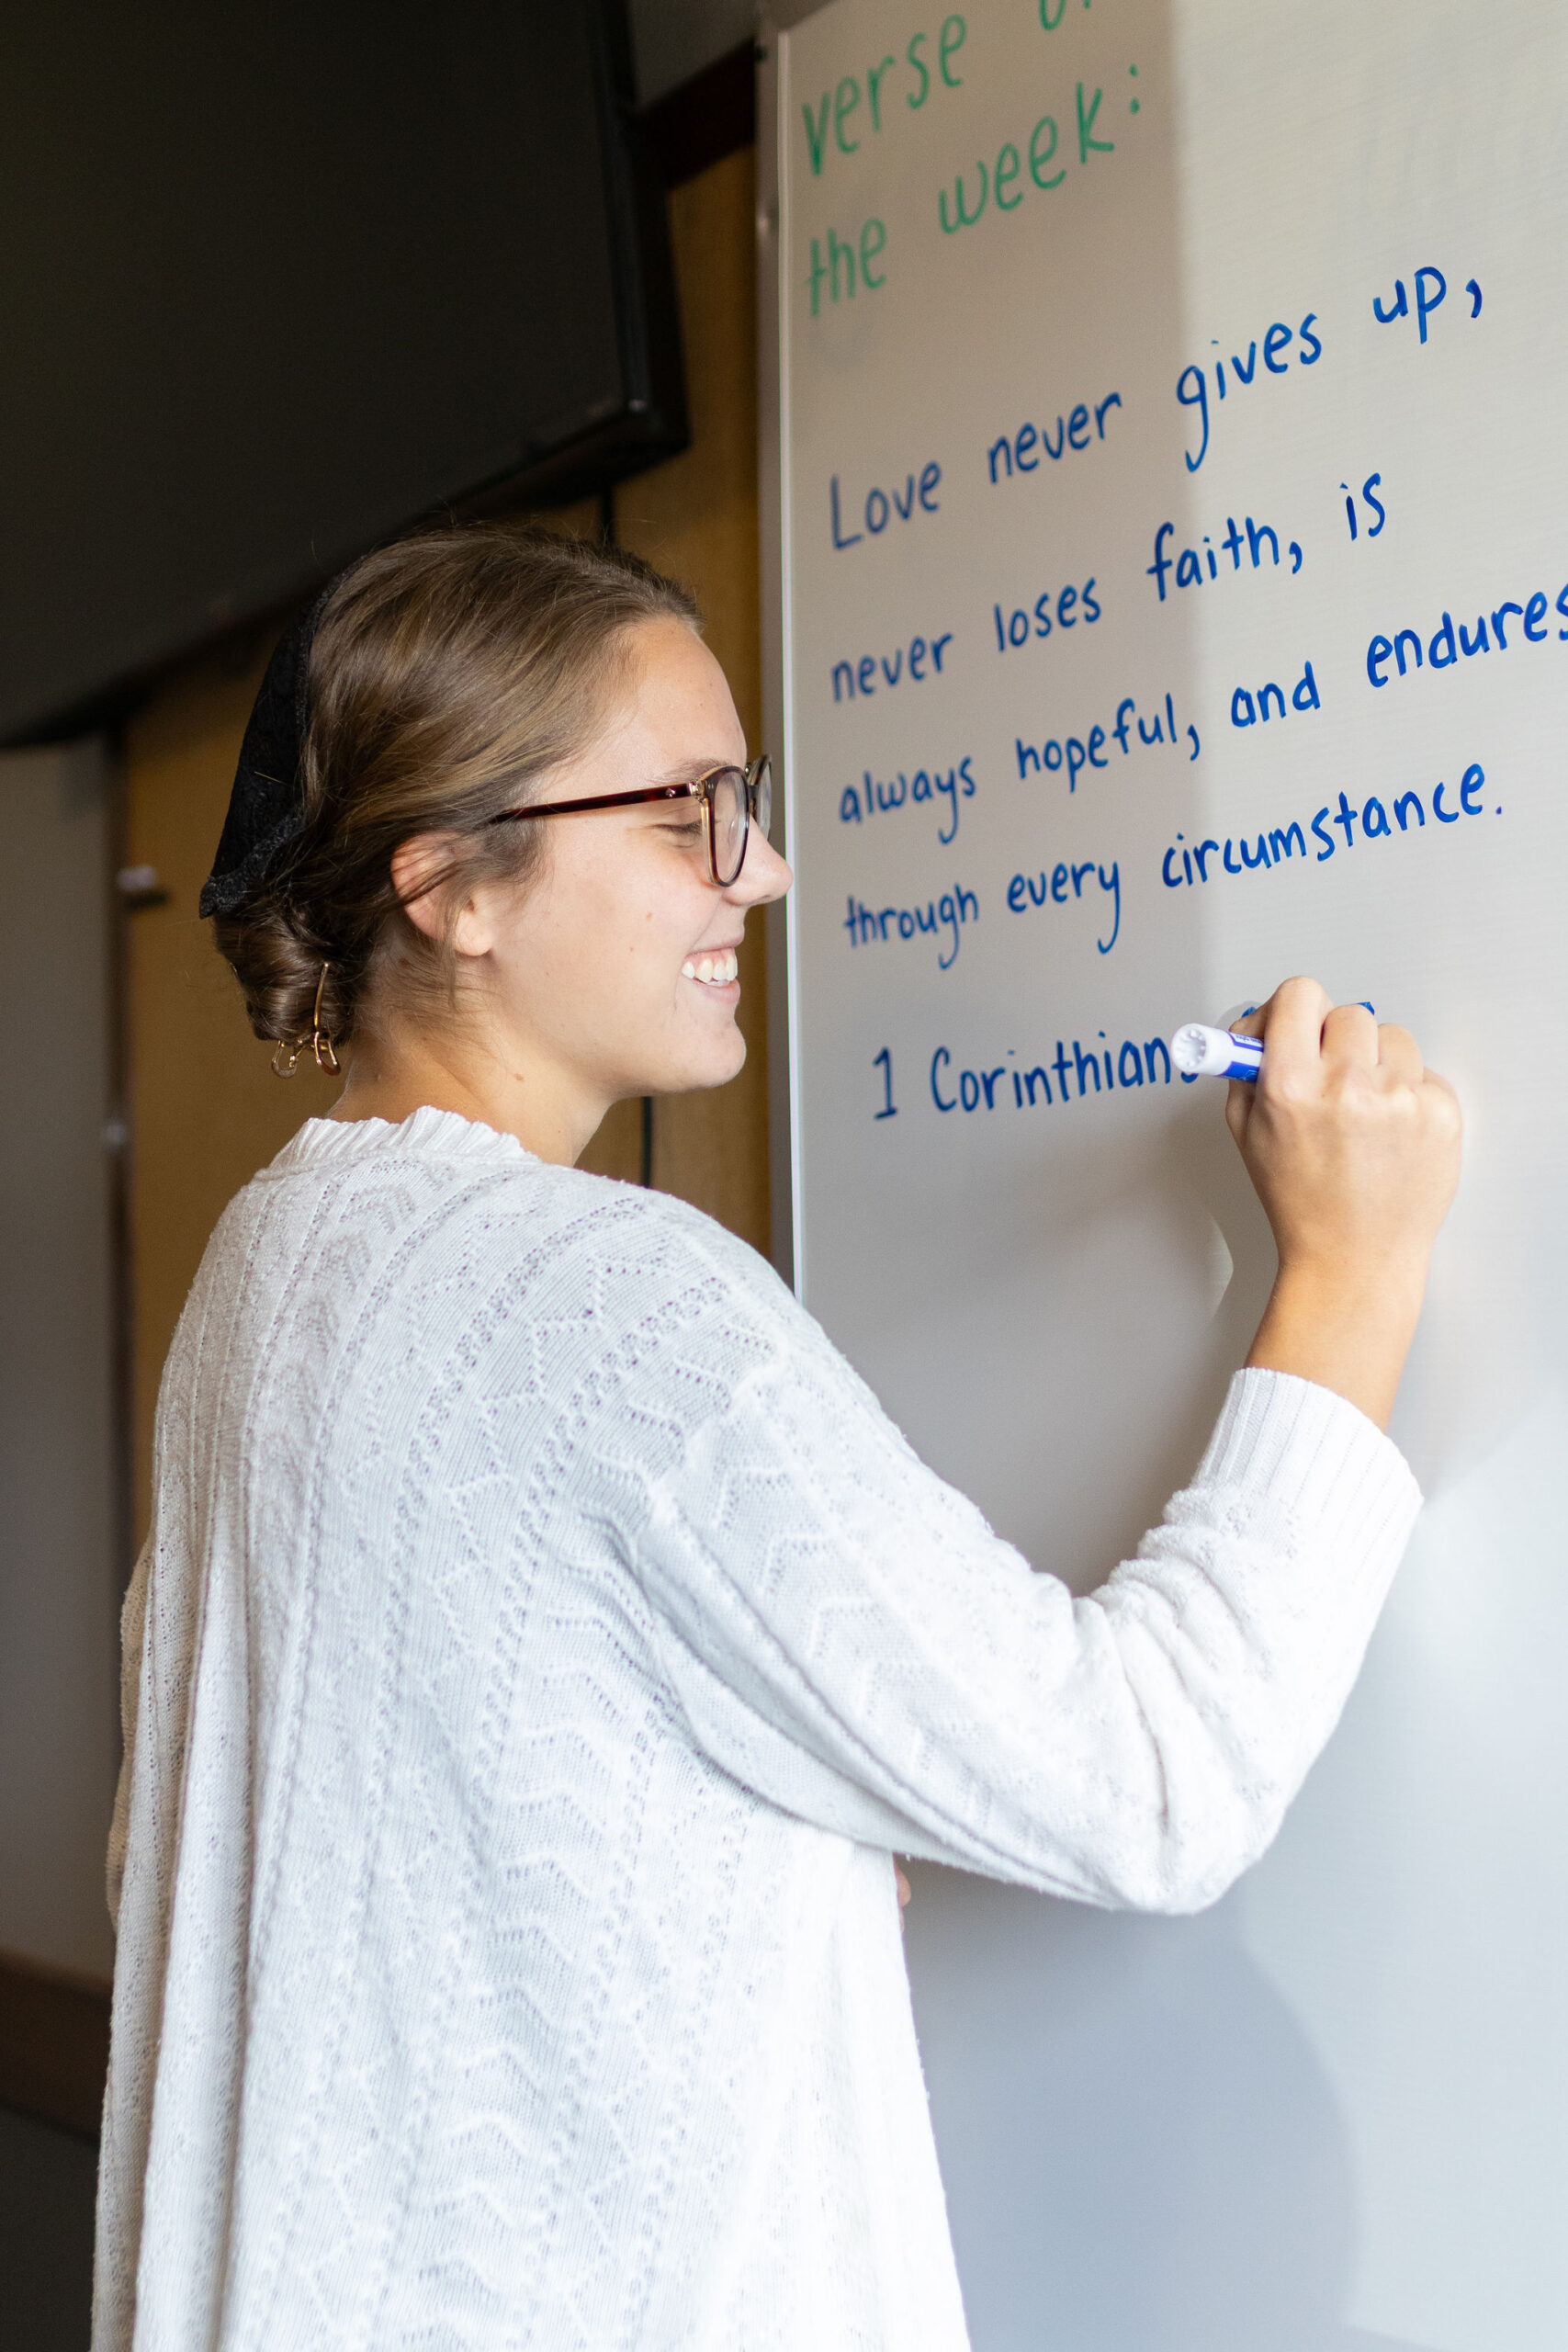 verse
the week:
Love never gives up,
never loses faith, is
always hopeful, and endures
through every circumstance.
1 Corinthians